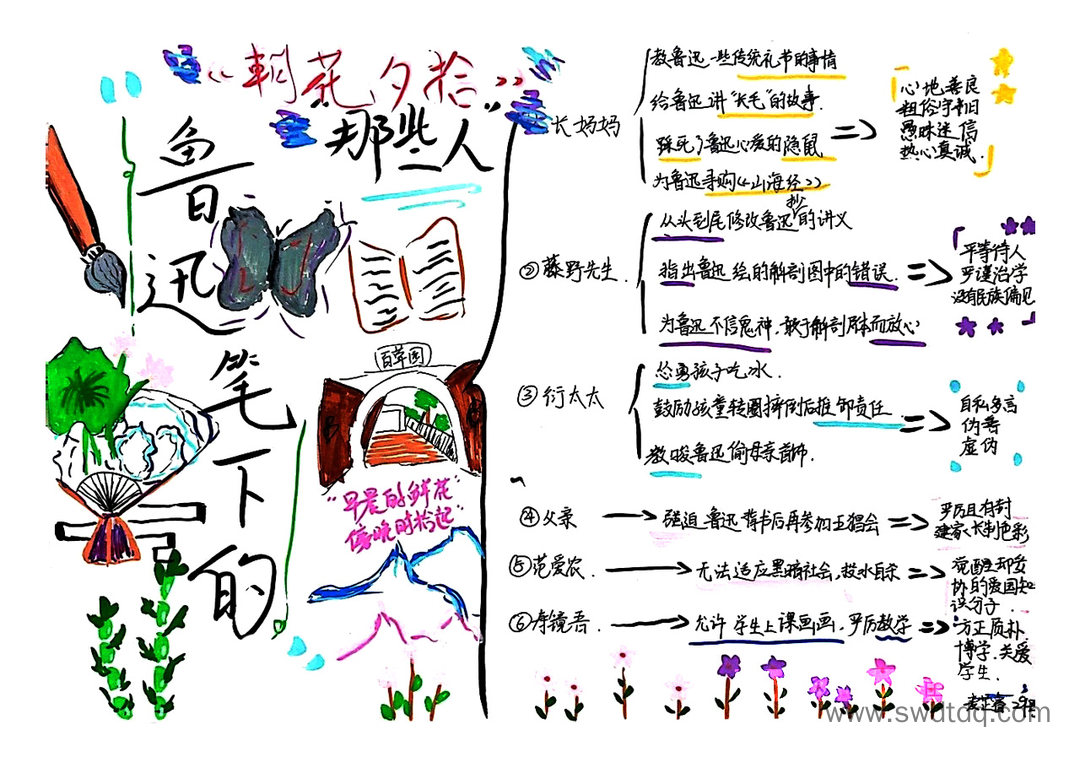 《朝花夕拾》
鲁迅笔下的
那些人
百草园
“早晨的鲜花
傍晚时拾起”
长妈妈
教鲁迅一些传统礼节的事情
给鲁迅讲“长毛”的故事.
踩死了鲁迅心爱的隐鼠
为鲁迅寻购《山海经》
=>
心地善良
粗俗守旧
愚昧迷信
热心真诚.
②藤野先生.
从头到尾修改鲁迅抄的讲义
指出鲁迅绘的解剖图中的错误.
为鲁迅不信鬼神,敢于解剖尸体而放心
=>
平等待人
严谨治学
没有民族偏见
③衍太太
怂恿孩子吃冰.
鼓励孩童转圈摔倒后推卸责任
教唆鲁迅偷母亲首饰.
=>
自私多言
伪善
虚伪
④父亲
强迫鲁迅背书后再参加五猖会
=>
严厉且有封
建家长制色彩
⑤范爱农.
无法适应黑暗社会,投水自杀
=>
觉醒却妥
协的爱国知
识分子.
⑥寿镜吾.
允许学生上课画画.严厉教学
=>
方正质朴
博学.关爱
学生.
www.swdtdq.com